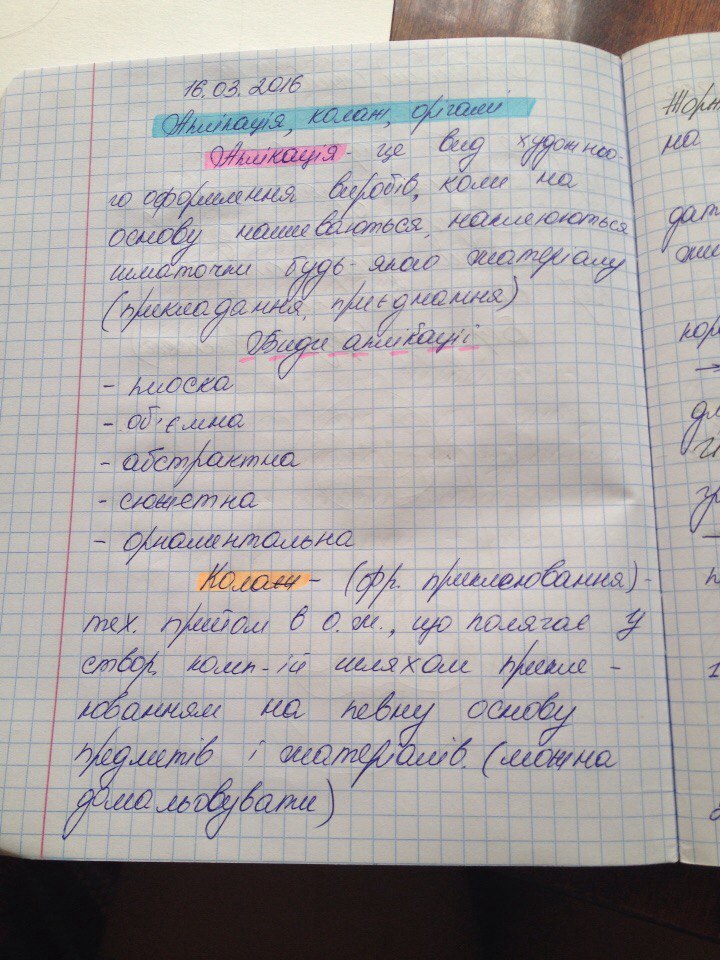 16.03.2016
Аплікація, колаж, орігамі
Аплікація - це вид художньо-
го оформлення виробів, коли на
основу нашиваються, наклеюються
шматочки будь-якого матеріалу
(прикладання, приєднання)
Види аплікації
- плоска
- об'ємна
- абстрактна
- сюжетна
- орнаментальна
Колаж - (фр. приклеювання) -
тех. прийом в о.м., що полягає у
створ. комп-ій шляхом прикле-
юванням на певну основу
предметів і матеріалів. (можна
домальовувати)
на
дат